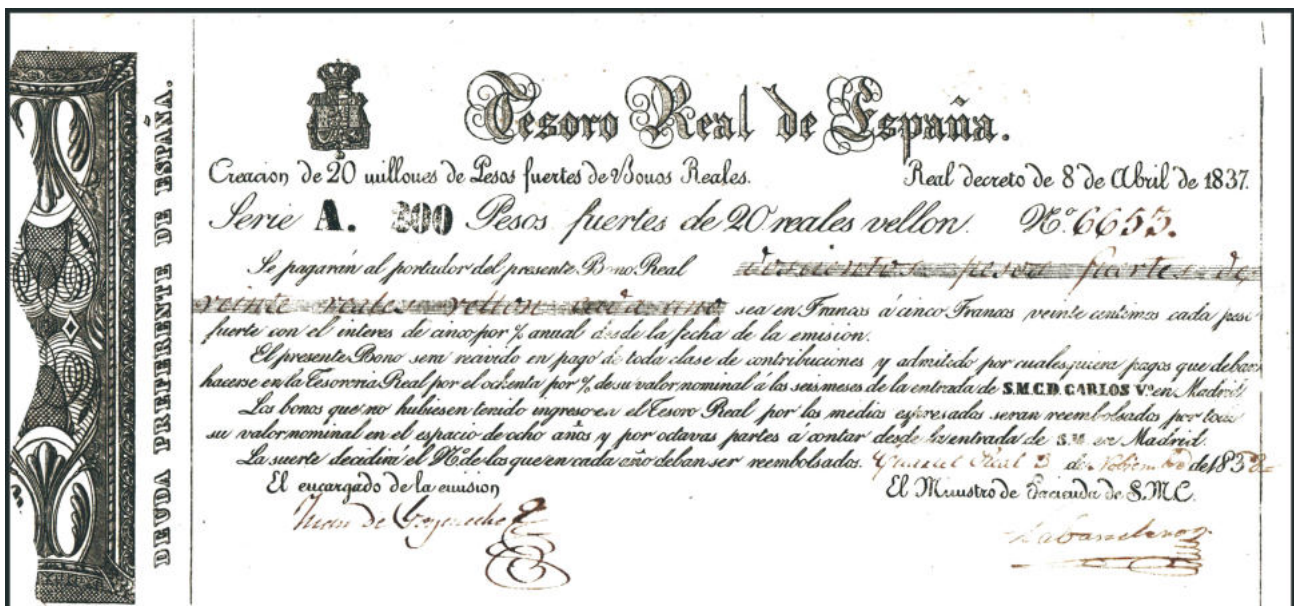 DEUDA PREFERENTE DE ESPAÑA.
Tesoro Real de España.
Creacion de 20 millones de Pesos fuertes de Bonos Reales. Real decreto de 8 de Abril de 1837.
Serie A. 200 Pesos fuertes de 20 reales vellon. Nº 6653.
Se pagarán al portador del presente Bono Real doscientos pesos fuertes de
veinte reales vellon cada uno sea en Francos á cinco Francos veinte centimos cada peso
fuerte con el interes de cinco por % anual desde la fecha de la emision.
El presente Bono sera recivido en pago de toda clase de contribuciones y admitido por cualesquiera pagos que deban
hacerse en la Tesoreria Real por el ochenta por % de su valor nominal á los seis meses de la entrada de S.M.C.D. CARLOS Vº en Madrid.
Los bonos que no hubiesen tenido ingreso en el Tesoro Real por los medios espresados seran reembolsados por todo
su valor nominal en el espacio de ocho años y por octavas partes á contar desde la entrada de S.M. en Madrid.
La suerte decidirá el Nº de los que en cada año deban ser reembolsados. Cuartel Real 3 de Nobiembre de 1838
El encargado de la emision El Ministro de Hacienda de S.M.C.
Juan de Goyeneche Labandero